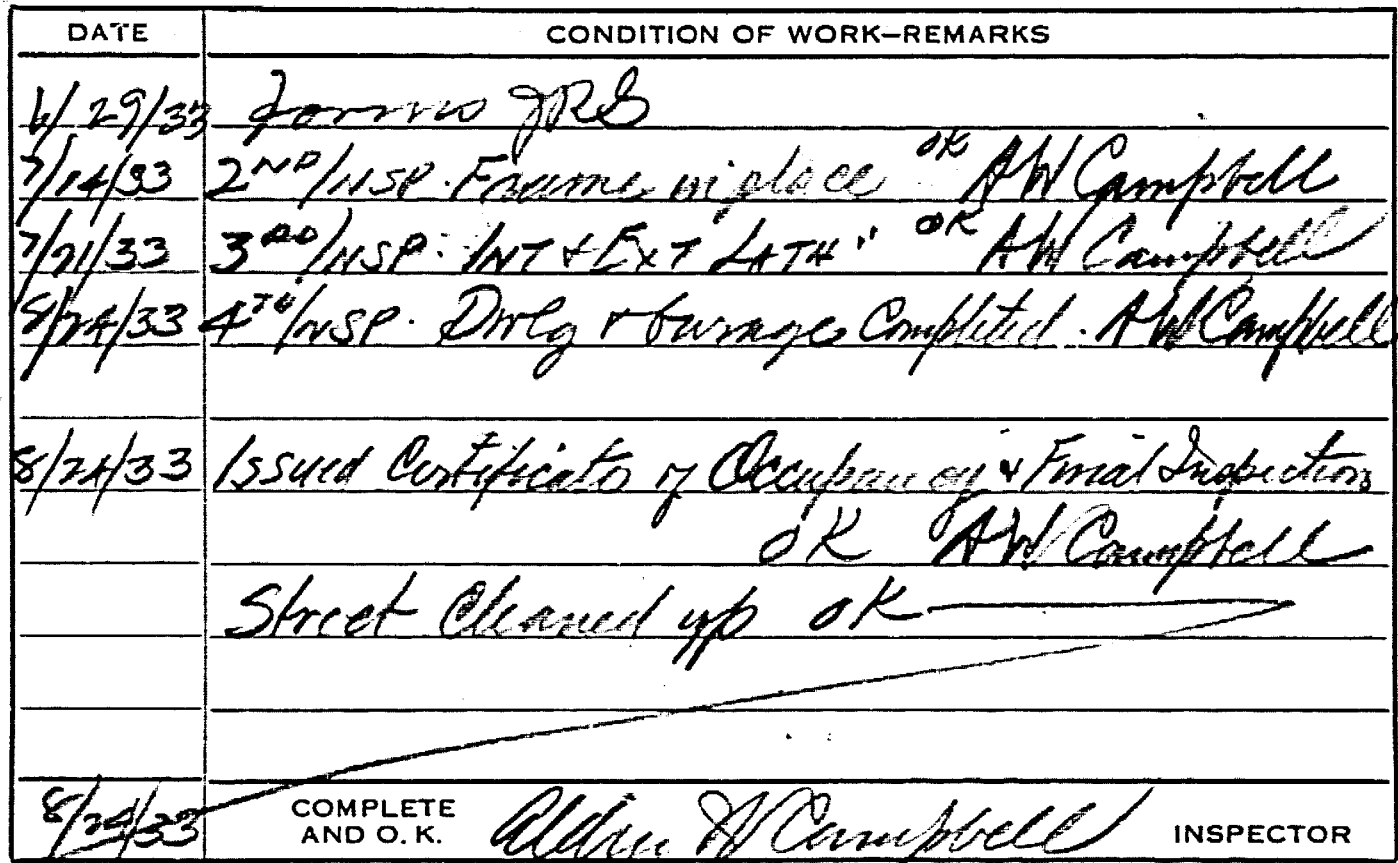 DATE CONDITION OF WORK–REMARKS
6/29/33 Forms JRS
7/14/33 2ND INSP. Frame in place OK AW Campbell
7/21/33 3RD INSP. INT & EXT LATH " OK AW Campbell
8/24/33 4TH INSP. Dwlg & Garage Completed. AW Campbell
8/24/33 Issued Certificate of Occupancy & Final Inspection
OK AW Campbell
Street Cleaned up OK
8/24/33 COMPLETE AND O. K. W Campbell INSPECTOR